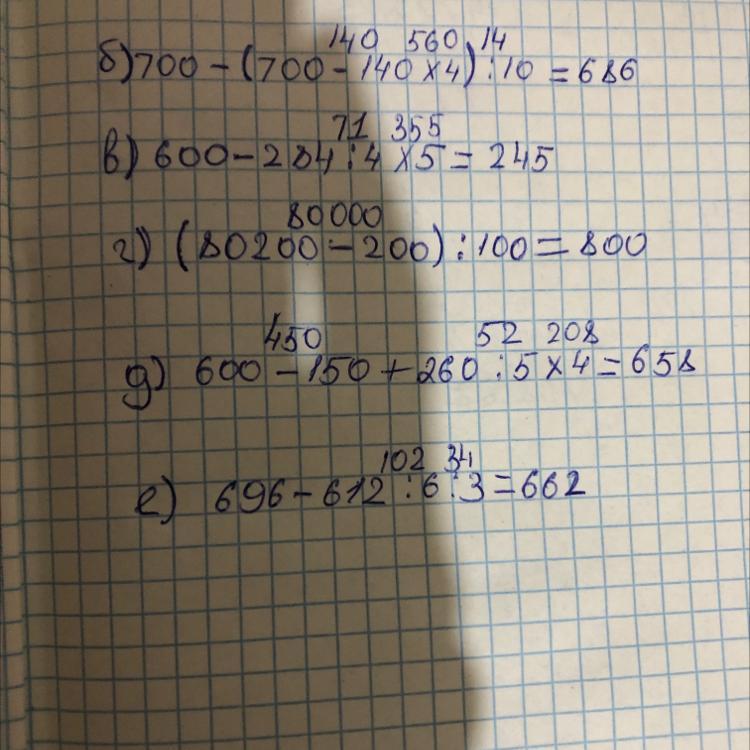 140 560 14
б) 700 - (700 - 140 × 4) : 10 = 686
71 355
в) 600 - 284 : 4 × 5 = 245
80000
г) (80200 - 200) : 100 = 800
450 52 208
д) 600 - 150 + 260 : 5 × 4 = 658
102 34
е) 696 - 612 : 6 : 3 = 662